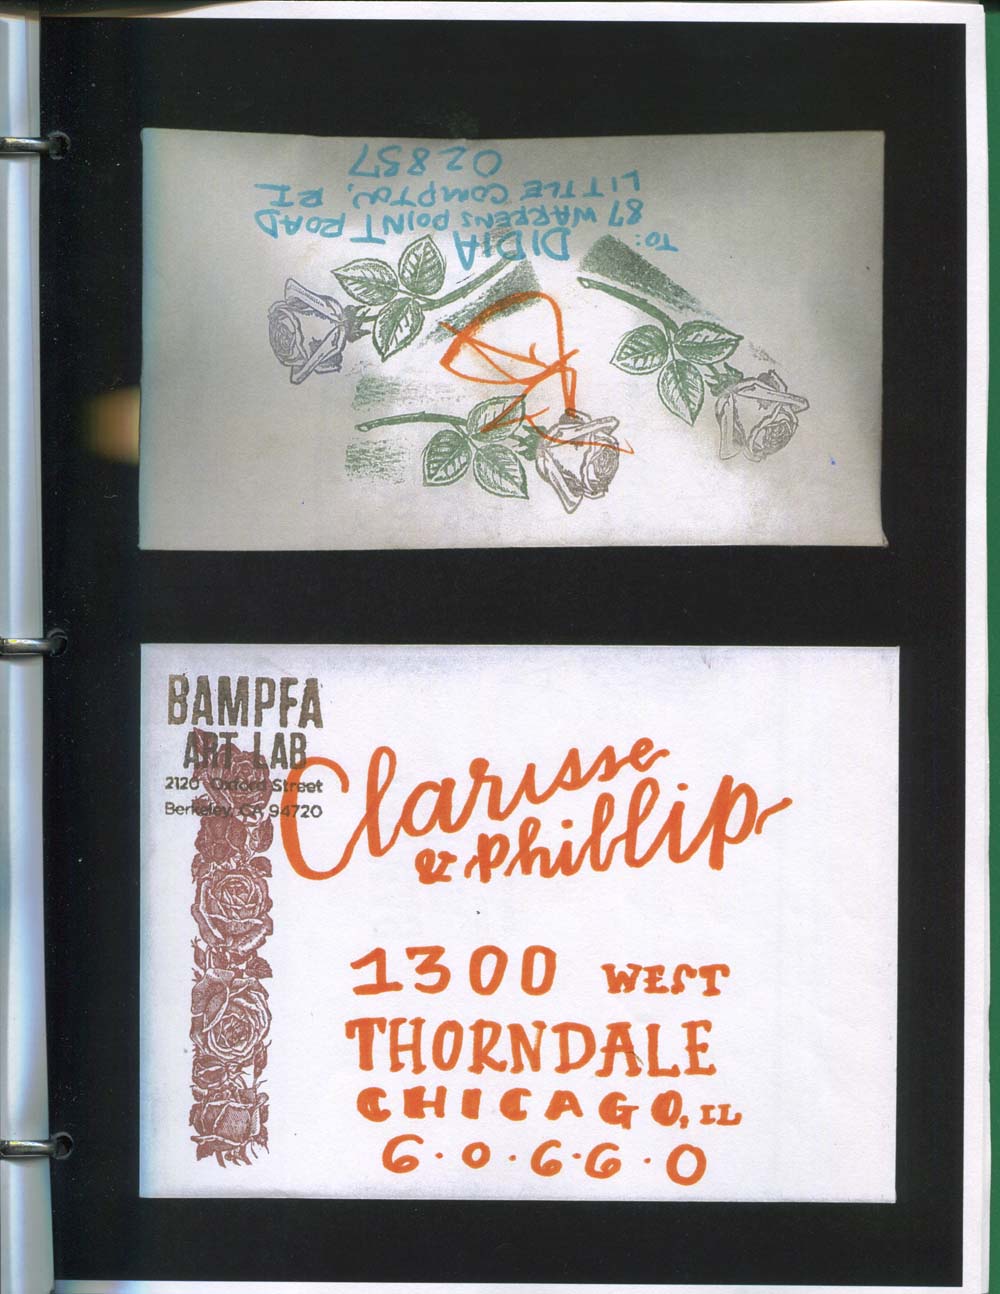 TO:
DIDIA
87 WARRENS POINT ROAD
LITTLE COMPTON, RI
02837
BAMPFA
ART LAB
2120 Oxford Street
Berkeley, CA 94720
Clarisse
& Phillip
1300 WEST
THORNDALE
CHICAGO, IL
6·0·6·6·0